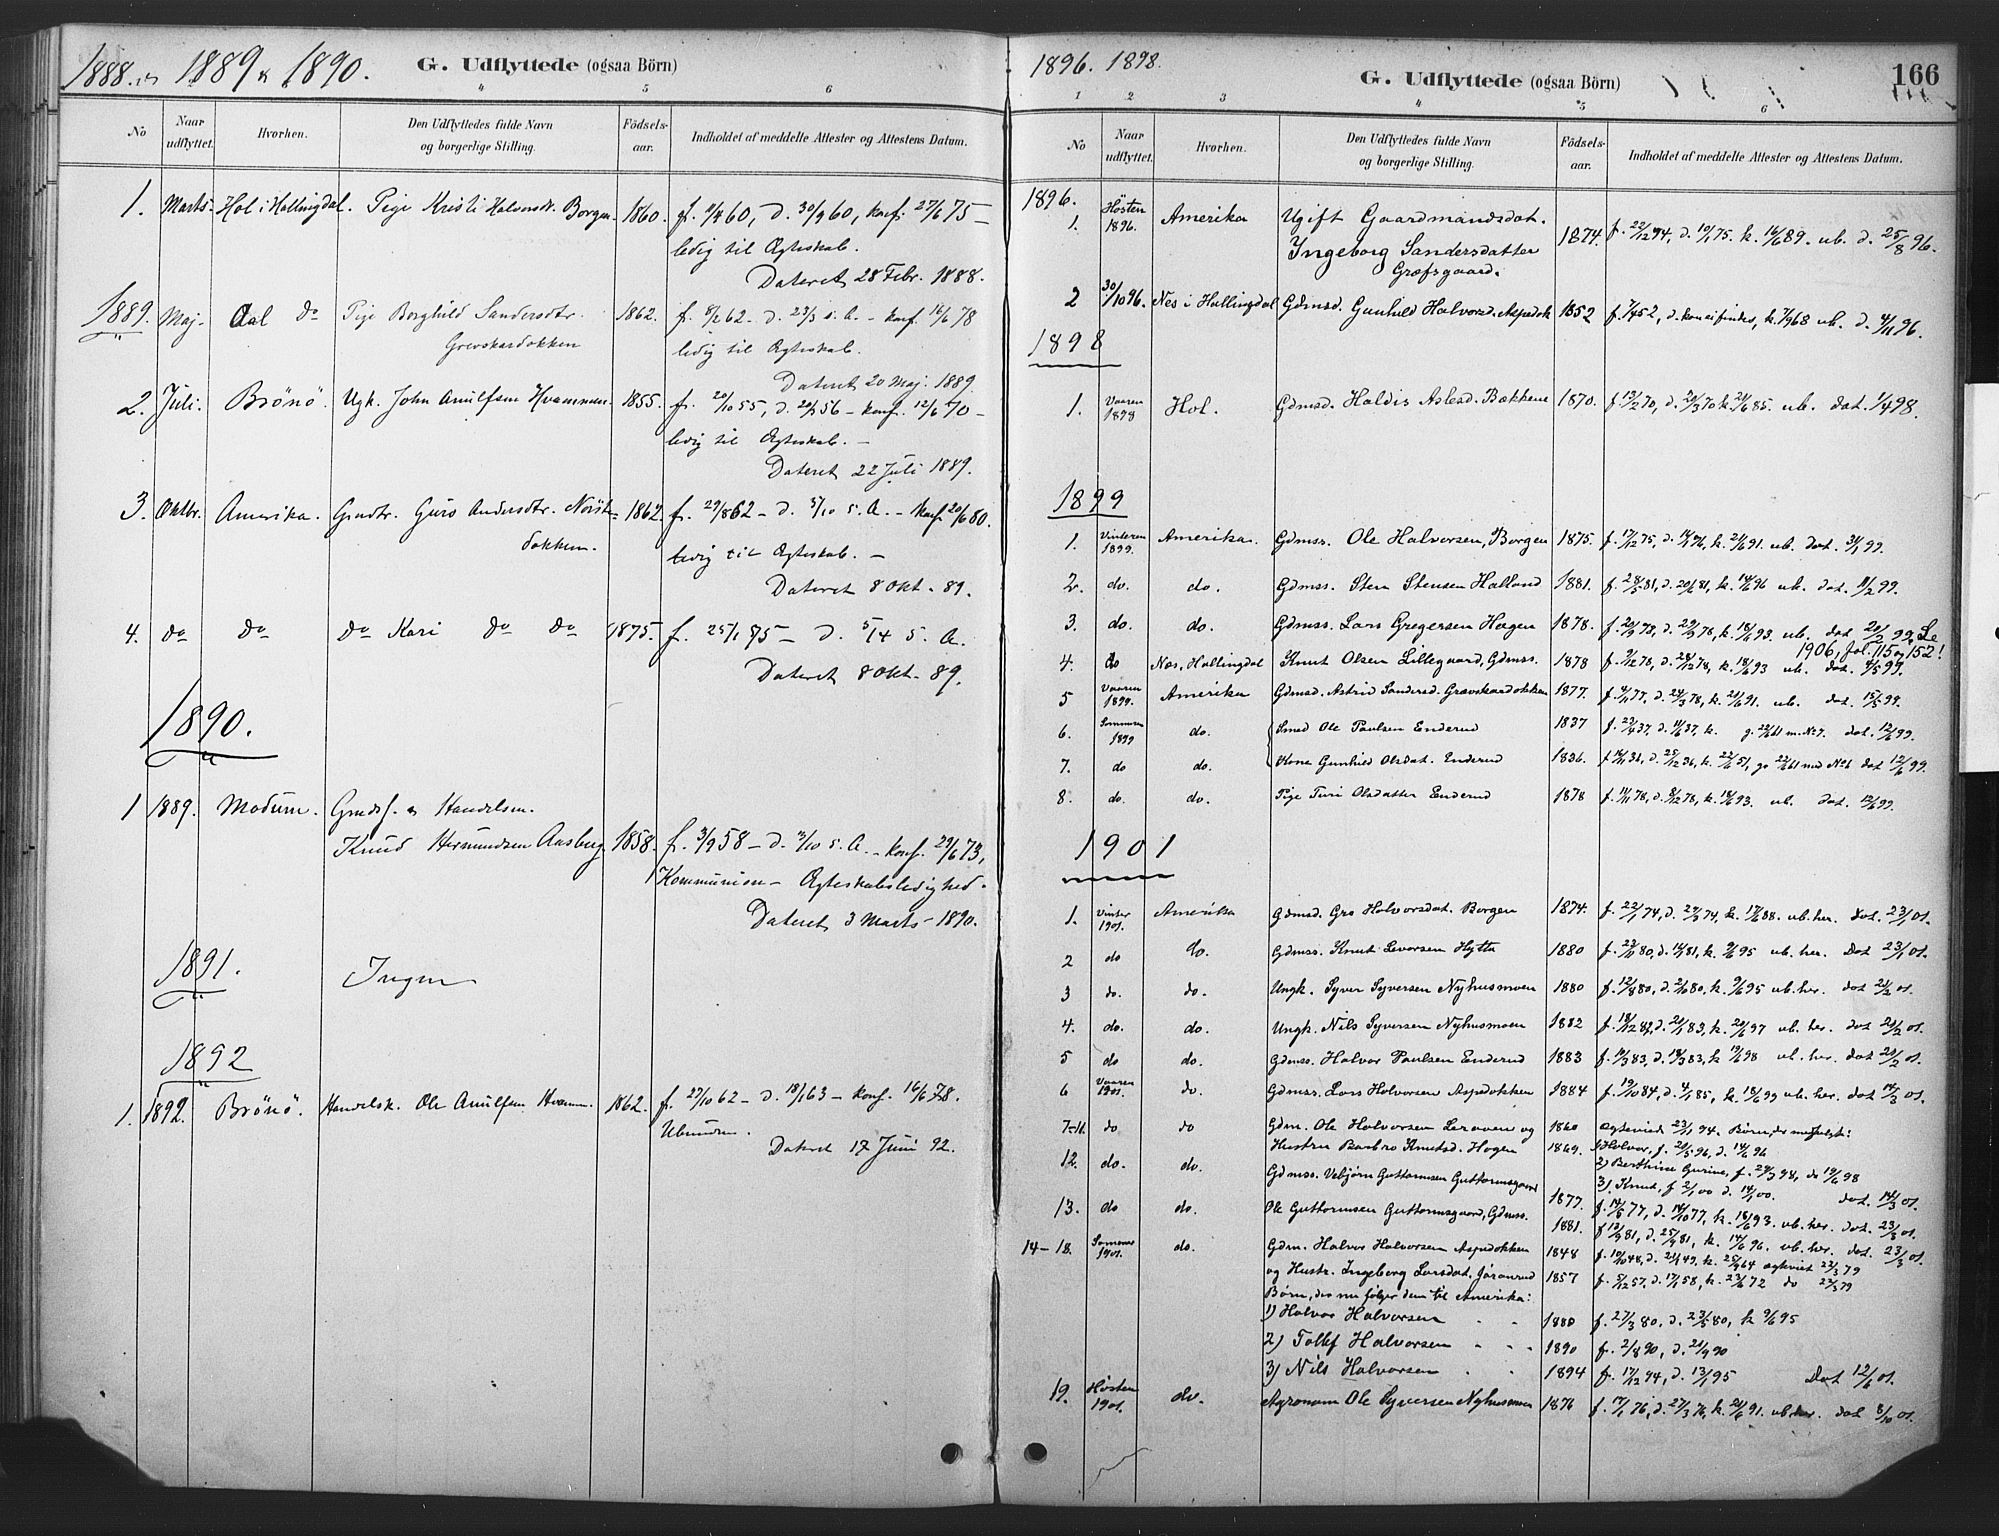 1888 & 1889 & 1890. G. Udflyttede (ogsaa Börn)
4 5 6
No Naar udflyttet. Hvorhen. Den Udflyttedes fulde Navn og borgerlige Stilling. Födsels-aar. Indholdet af meddelte Attester og Attestens Datum.
1. Marts. Hol i Hallingdal. Pige Kristi Halvorsdt. Borgen 1860. f. 60, d. 30/9 60, konf. 27/6 75 –
ledig til Ægteskab.
Dateret 28 Febr. 1888.
1889. Maj. Aal do Pige Borghild Sandersdtr. 1862. f. 8/2 62 – d. 23/3 s. A. – konf. 16/6 78
Grevskardokken ledig til Ægteskab.
Dateret 20 Maj. 1889.
2. Juli. Brönö. Ugk. John Arnulfsen Hvammen 1855. f. 20/10 55, d. 56 – konf. 12/6 70 –
ledig til Ægteskab. –
Dateret 22 Juli 1889.
3. Oktbr. Amerika. Grmdtr. Guro Andersdtr. Norste- 1862 f. 29/8 62 – d. 5/10 s. A. – konf. 20/6 80.
dokken. ledig til Ægteskab. –
Dateret 8 Okt. 89.
4. do do do Kari do do 1875. f. 25/1 75 – d. 5/4 s. A.
Dateret 8 Okt. 89.
1890.
1 1889. Modum. Grmds. & Handelsm.
Knud Hermundsen Aasberg 1858. f. 3/9 58 – d. 3/10 s. A. – konf. 29/6 73,
Kommunion – Ægteskabsledighed.
Dateret 3 Marts – 1890.
1891. Ingen
1892
1. 1892. Brönö. Handelsk. Ole Arnulfsen Hvamm. 1862. f. 27/10 62 – d. 18/1 63 – konf. 16/6 78.
Ubunden.
Dateret 17 Juni 92.
1896. 1898. G. Udflyttede (ogsaa Börn) 166
1 2 3 4 5 6
No Naar udflyttet. Hvorhen. Den Udflyttedes fulde Navn og borgerlige Stilling. Födsels-aar. Indholdet af meddelte Attester og Attestens Datum.
1896.
1. Høsten 1896. Amerika Ugift Gaardmandsdat. 1874. f. 22/12 74, d. 10/1 75. k. 16/6 89. ub. d. 25/8 96.
Ingeborg Sandersdatter
Græfsgaard.
2 30/10 96. Nes i Hallingdal Gdmsd. Gunhild Halvorsd. Aspedok 1852 f. 7/4 52, d. kan ei findes, k. 68 ub. d. 4/11 96.
1898
1. Vaaren 1898 Hol. Gdmsd. Haldis Aslesd. Bakkene 1870. f. 13/2 70, d. 20/3 70 k. 21/6 85. ub. dat. 1/4 98.
1899
1. Vinteren 1899. Amerika. Gdmss. Ole Halvorsen, Borgen 1875. f. 17/12 75, d. 76, k. 21/6 91. ub. dat. 31/1 99.
2. do. do. Gdmss. Sten Stensen Halland 1881. f. 28/5 81, d. 20/6 81, k. 14/6 96 ub. dat. 11/2 99.
3. do. do. Gdmss. Lars Gregersen Hagen 1878. f. 20/9 78, d. 29/9 78, k. 18/6 93. ub. dat. 20/2 99. Se
1906, fol. 115 og 152!
4. do Nes, Hallingdal Knut Olsen Lillegaard, Gdmss. 1878 f. 3/12 78, d. 28/12 78, k. 18/6 93 ub. dat. 4/5 99.
5 Vaaren 1899. Amerika Gdmsd. Astrid Sandersd. Grævskardokken 1877. f. 77, d. 24/3 78, k. 21/6 91. ub. dat. 15/5 99.
6. Sommeren 1899 do. Smed Ole Paulsen Enderud 1837 f. 23/4 37, d. 11/6 37, k. g. 61 m. No 7. dat. 12/6 99.
7. do do. Kone Gunhild Olsdat. Enderud 1836. f. 36, d. 25/12 36, k. 22/6 51, gv. 61 med No 6 dat 12/6 99.
8. do. do. Pige Turi Olsdatter Enderud 1878 f. 78, d. 8/12 78, k. 18/6 93. ub. dat. 12/6 99.
1901
1. Vinter 1901. Amerika Gdmsd. Gro Halvorsdat. Borgen 1874. f. 22/1 74, d. 74, k. 17/6 88. ub. her. dat. 23/1 01.
2 do do. Gdmss. Knut Levorsen Hytta 1880 f. 23/11 80, d. 81, k. 9/6 95 ub. her. Dat 23/1 01.
3 do. do. Ungk. Syver Syversen Nyhusmoen 1880 f. 12/8 80, d. 80, k. 9/6 95 ub. her. dat 21/2 01.
4. do. do. Ungk. Nils Syversen Nyhusmoen 1882 f. 18/12 82, d. 21/1 83, k. 20/6 97 ub. her. dat 21/2 01.
5 do do. Gdmss. Halvor Paulsen Enderud 1883 f. 11/3 83, d. 18/3 83, k. 19/6 98 ub. her. dat 20/2 01.
6 Vaaren 1901. do. Gdmss. Lars Halvorsen Aspedokken 1884 f. 19/10 84, d. 4/1 85, k. 18/6 99 ub. her. dat 14/3 01.
7–11. do do Gdm. Ole Halvorsen Leraven og 1860 Ægteviet 23/1 94. Børn, der medfulgte:
Hustru Barbro Knutsd. Hagen 1869. 1) Halvor, f. 20/5 96, d. 14/6 96
2) Berthine Gurine, f. 29/3 98, d. 19/6 98
3) Knut, f. 2/1 00 d. 14/1 00. dat. 14/3 01.
12. do. do. Gdmss. Vebjørn Guttormsen Guttormsgaard 1877. f. 14/8 77, d. 14/10 77, k. 18/6 93. ub. her. dat. 23/3 01.
13. do do. Ole Guttormsen Guttormsgaard, Gdmss. 1881. f. 12/9 81, d. 25/9 81, k. 14/6 96. ub. her. dat. 23/3 01.
14–18. Sommer 1901. do. Gdm. Halvor Halvorsen Aspedokken 1848 f. 19/10 48, d. 49, k. 25/9 64 ægteviet 22/3 79
og Hustr. Ingeborg Larsdat. Jøranrud 1857 f. 5/12 57, d. 17/1 58, k. 23/6 72 do 22/3 79
Børn, der nu følger dem til Amerika:
1) Halvor Halvorsen 1880 f. 27/3 80, d. 23/5 80, k. 9/6 95
2) Tollef Halvorsen 1890 f. 2/8 90, d. 21/9 90
3) Nils Halvorsen 1894 f. 17/12 94, d. 13/1 95 Dat 12/6 01.
19. Høsten 1901. do. Agronom Ole Syversen Nyhusmoen 1876 f. 17/1 76, d. 27/3 76, k. 21/6 91. ub. her. dat 8/10 01.